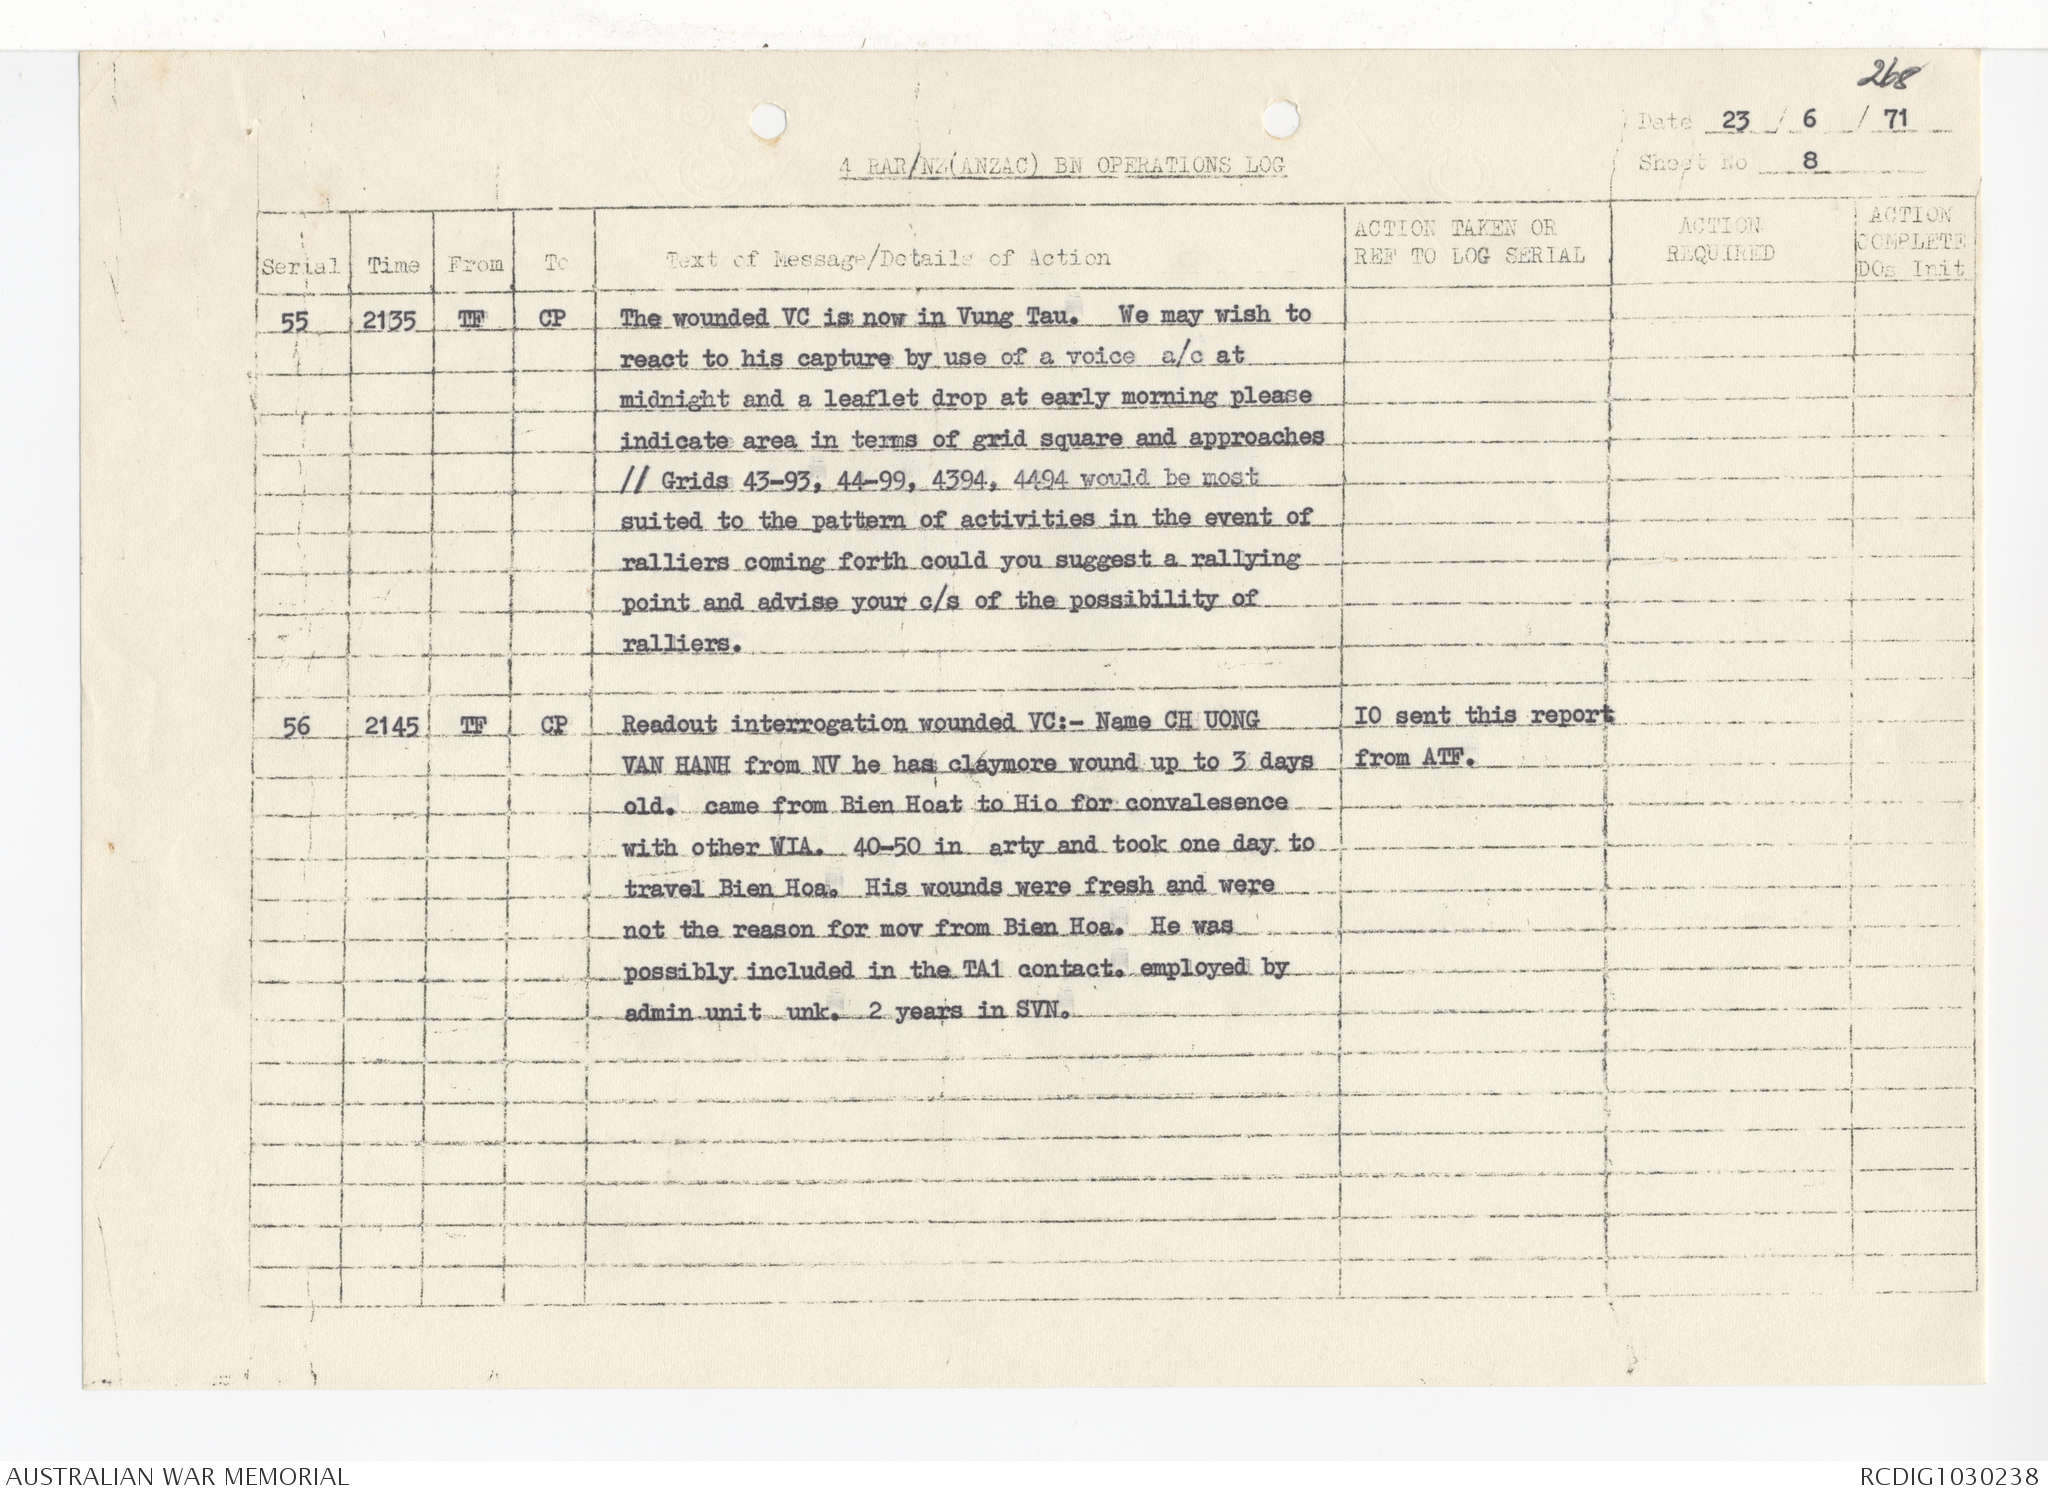 268
Date 23 / 6 / 71
Sheet No 8
4 RAR/NZ(ANZAC) BN OPERATIONS LOG
Serial Time From To Text of Message/Details of Action ACTION TAKEN OR REF TO LOG SERIAL ACTION REQUIRED ACTION COMPLETE DOs Init
55 2135 TF CP The wounded VC is now in Vung Tau. We may wish to
react to his capture by use of a voice a/c at
midnight and a leaflet drop at early morning please
indicate area in terms of grid square and approaches
// Grids 43-93, 44-99, 4394, 4494 would be most
suited to the pattern of activities in the event of
ralliers coming forth could you suggest a rallying
point and advise your c/s of the possibility of
ralliers.
56 2145 TF CP Readout interrogation wounded VC:- Name CH UONG IO sent this report
VAN HANH from NV he has claymore wound up to 3 days from ATF.
old. came from Bien Hoat to Hio for convalesence
with other WIA. 40-50 in arty and took one day to
travel Bien Hoa. His wounds were fresh and were
not the reason for mov from Bien Hoa. He was
possibly included in the TA1 contact. employed by
admin unit unk. 2 years in SVN.
AUSTRALIAN WAR MEMORIAL RCDIG1030238